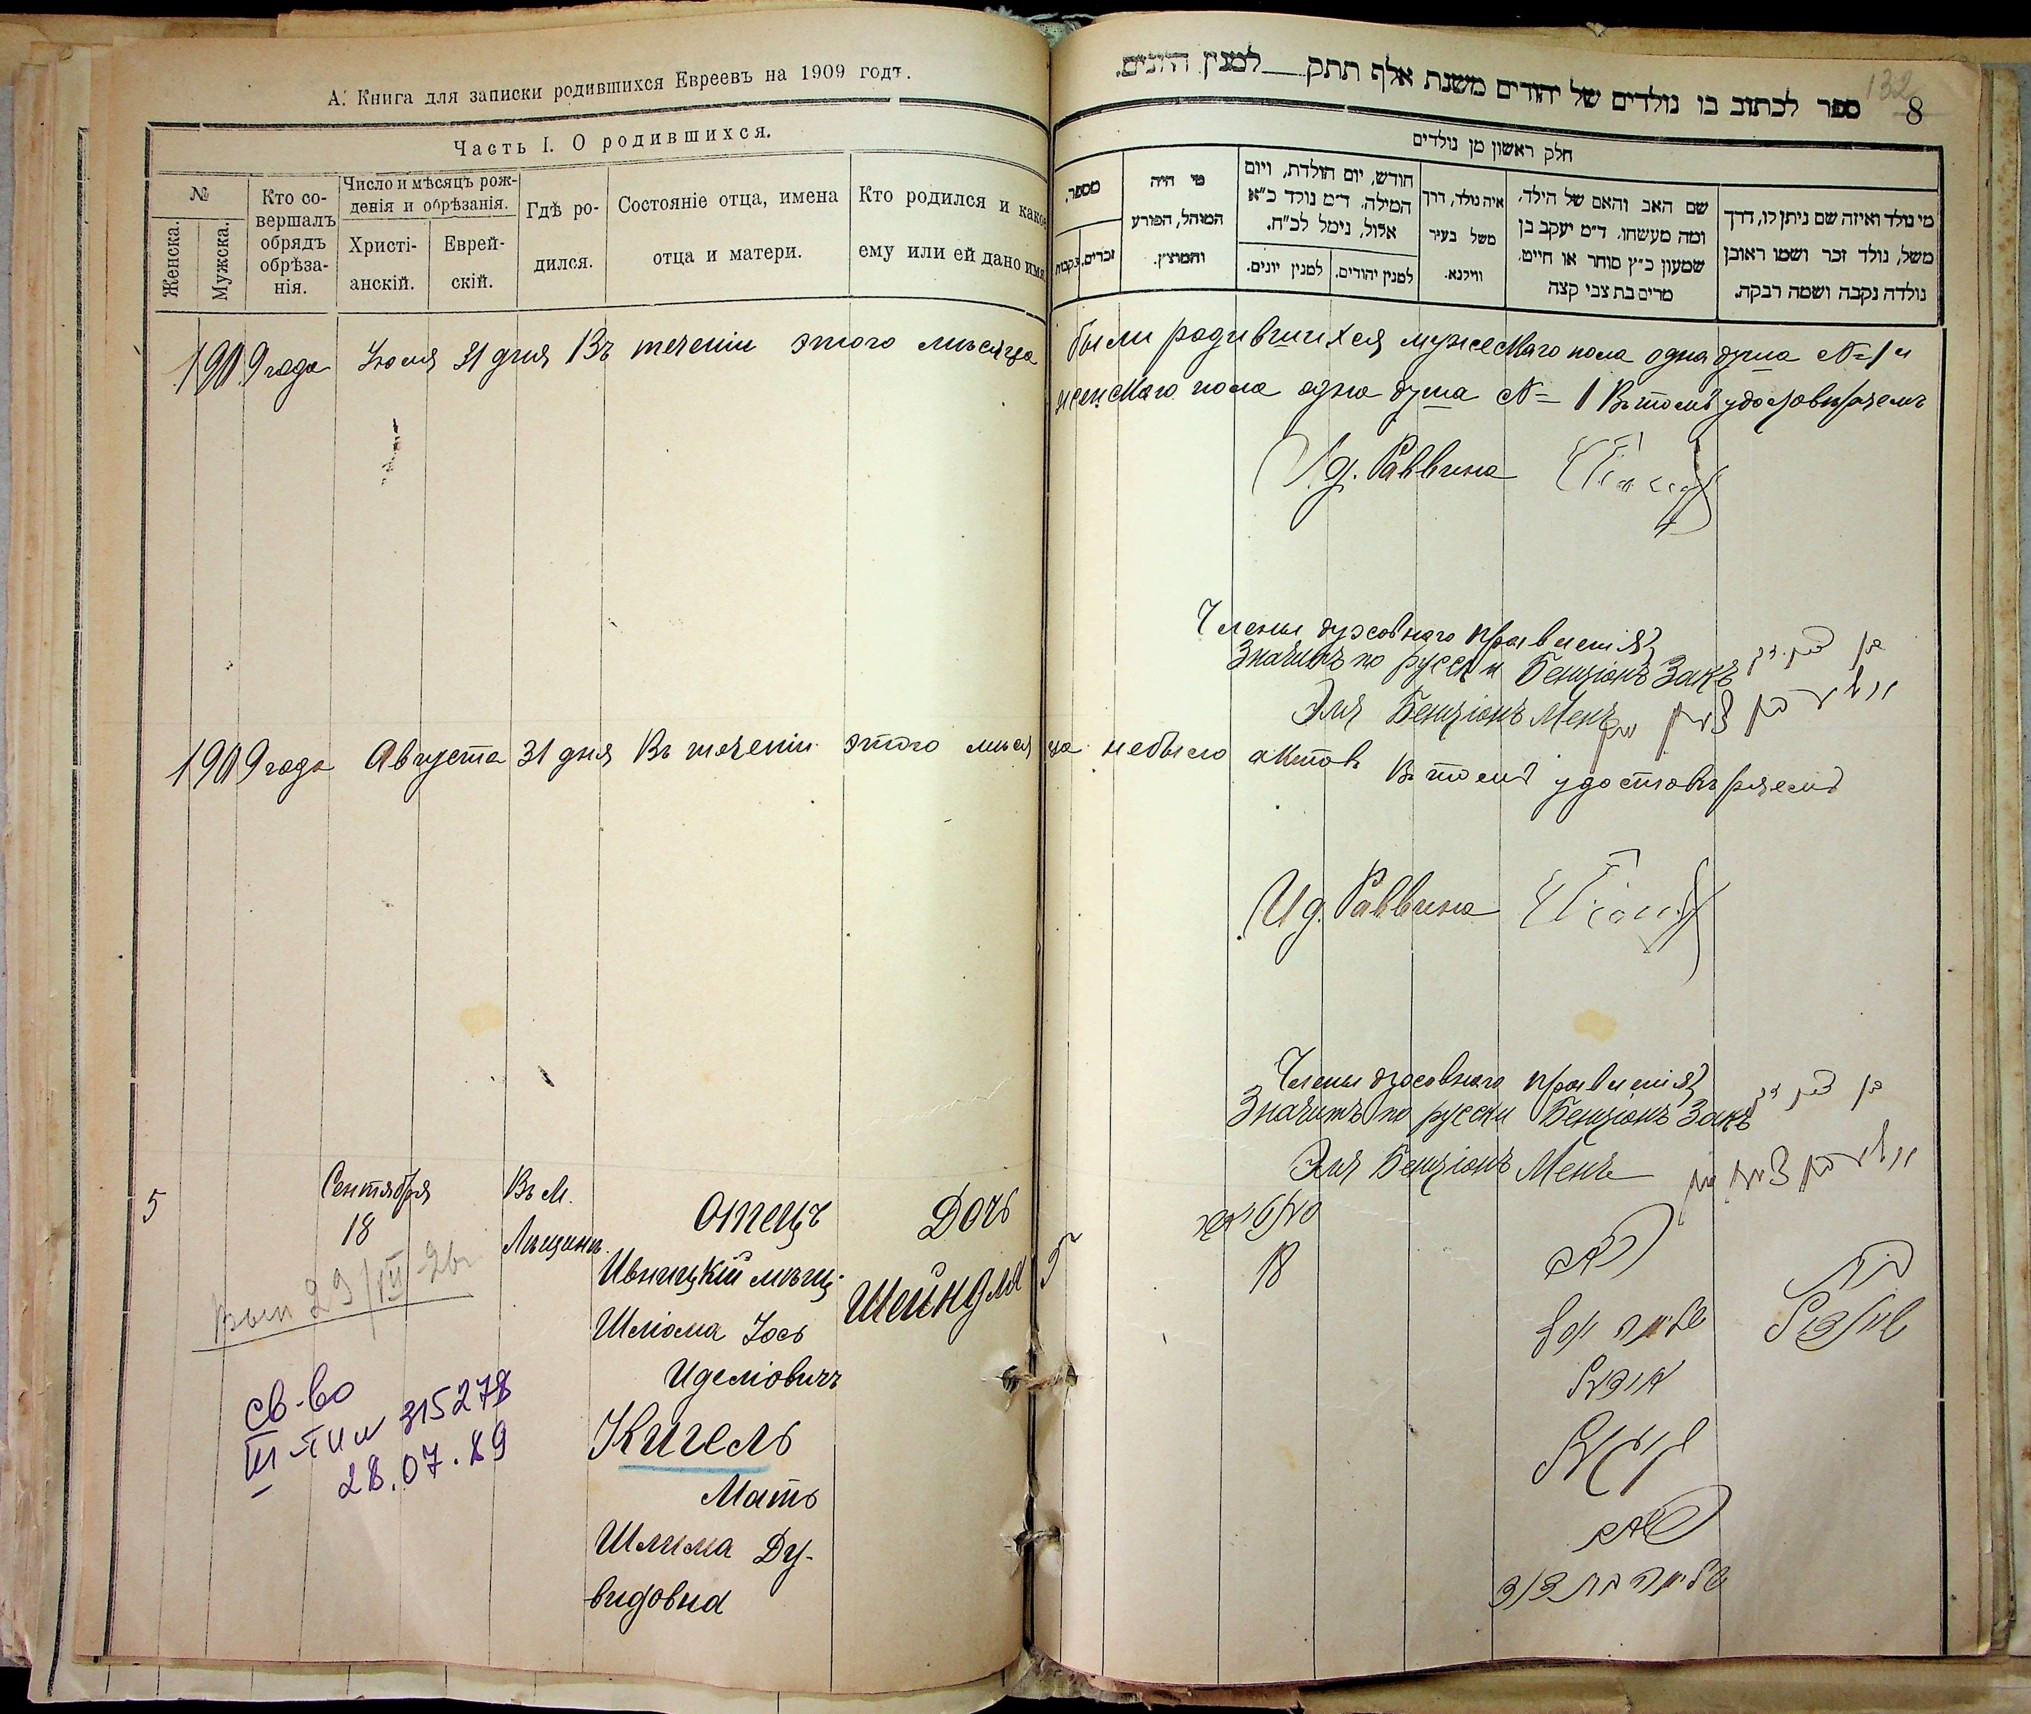 А. Книга для записки родившихся Евреевъ на 1909 годъ.
Часть I. О родившихся.
№
Женска.
Мужска.
Кто со-
вершалъ
обрядъ
обрѣза-
нія.
Число и мѣсяцъ рож-
денія и обрѣзанія.
Христі-
анскій.
Еврей-
скій.
Гдѣ ро-
дился.
Состояніе отца, имена
отца и матери.
Кто родился и какое
ему или ей дано имя
132
8
ספר לכתוב בו נולדים של יהודים משנת אלף תתק למנין היונים.
חלק ראשון מן נולדים
מספר.
זכרים.
נקבות
מי היה
המוהל, הפורע
והמוצץ.
חודש, יום הולדת, ויום
המילה. ד״מ נולד כ״א
אלול, נימל לכ״ח.
למנין יונים.
למנין יהודים.
איה נולד, דרך
משל בעיר
ווילנא.
שם האב והאם של הילד,
ומה מעשהו. ד״מ יעקב בן
שמעון כ״ץ סוחר או חייט,
מרים בת צבי קצה
מי נולד ואיזה שם ניתן לו, דרך
משל, נולד זכר ושמו ראובן
נולדה נקבה ושמה רבקה.
1909 года Іюля 31 дня Въ теченіи этого мѣсяца были родившихся мужескаго пола одна душа № 1 и
женскаго пола одна душа № 1 Въ томъ удостовѣряемъ
Ид. Раввина
Члены духовнаго правленія
Значитъ по русски Бенціонъ Закъ
Эля Бенціонъ Менъ
1909 года Августа 31 дня Въ теченіи этого мѣсяца небыло актов Въ томъ удостовѣряемъ
Ид. Раввина
Члены духовнаго правленія
Значитъ по русски Бенціонъ Закъ
Эля Бенціонъ Менъ
5
Сентября
18
Въ М.
Лѣщинъ
Отецъ
Ивницкій мѣщ.
Шліома Іось
Иделіовичъ
Кигель
Мать
Шлима Ду-
видовна
Дочь
Шейндля
18
האב
שלמה יוסף
האם
שלימה בת דוד
בת
שיינדל
вып 29/III 26г
св-во
III-ЯИИ 315278
28.07.89